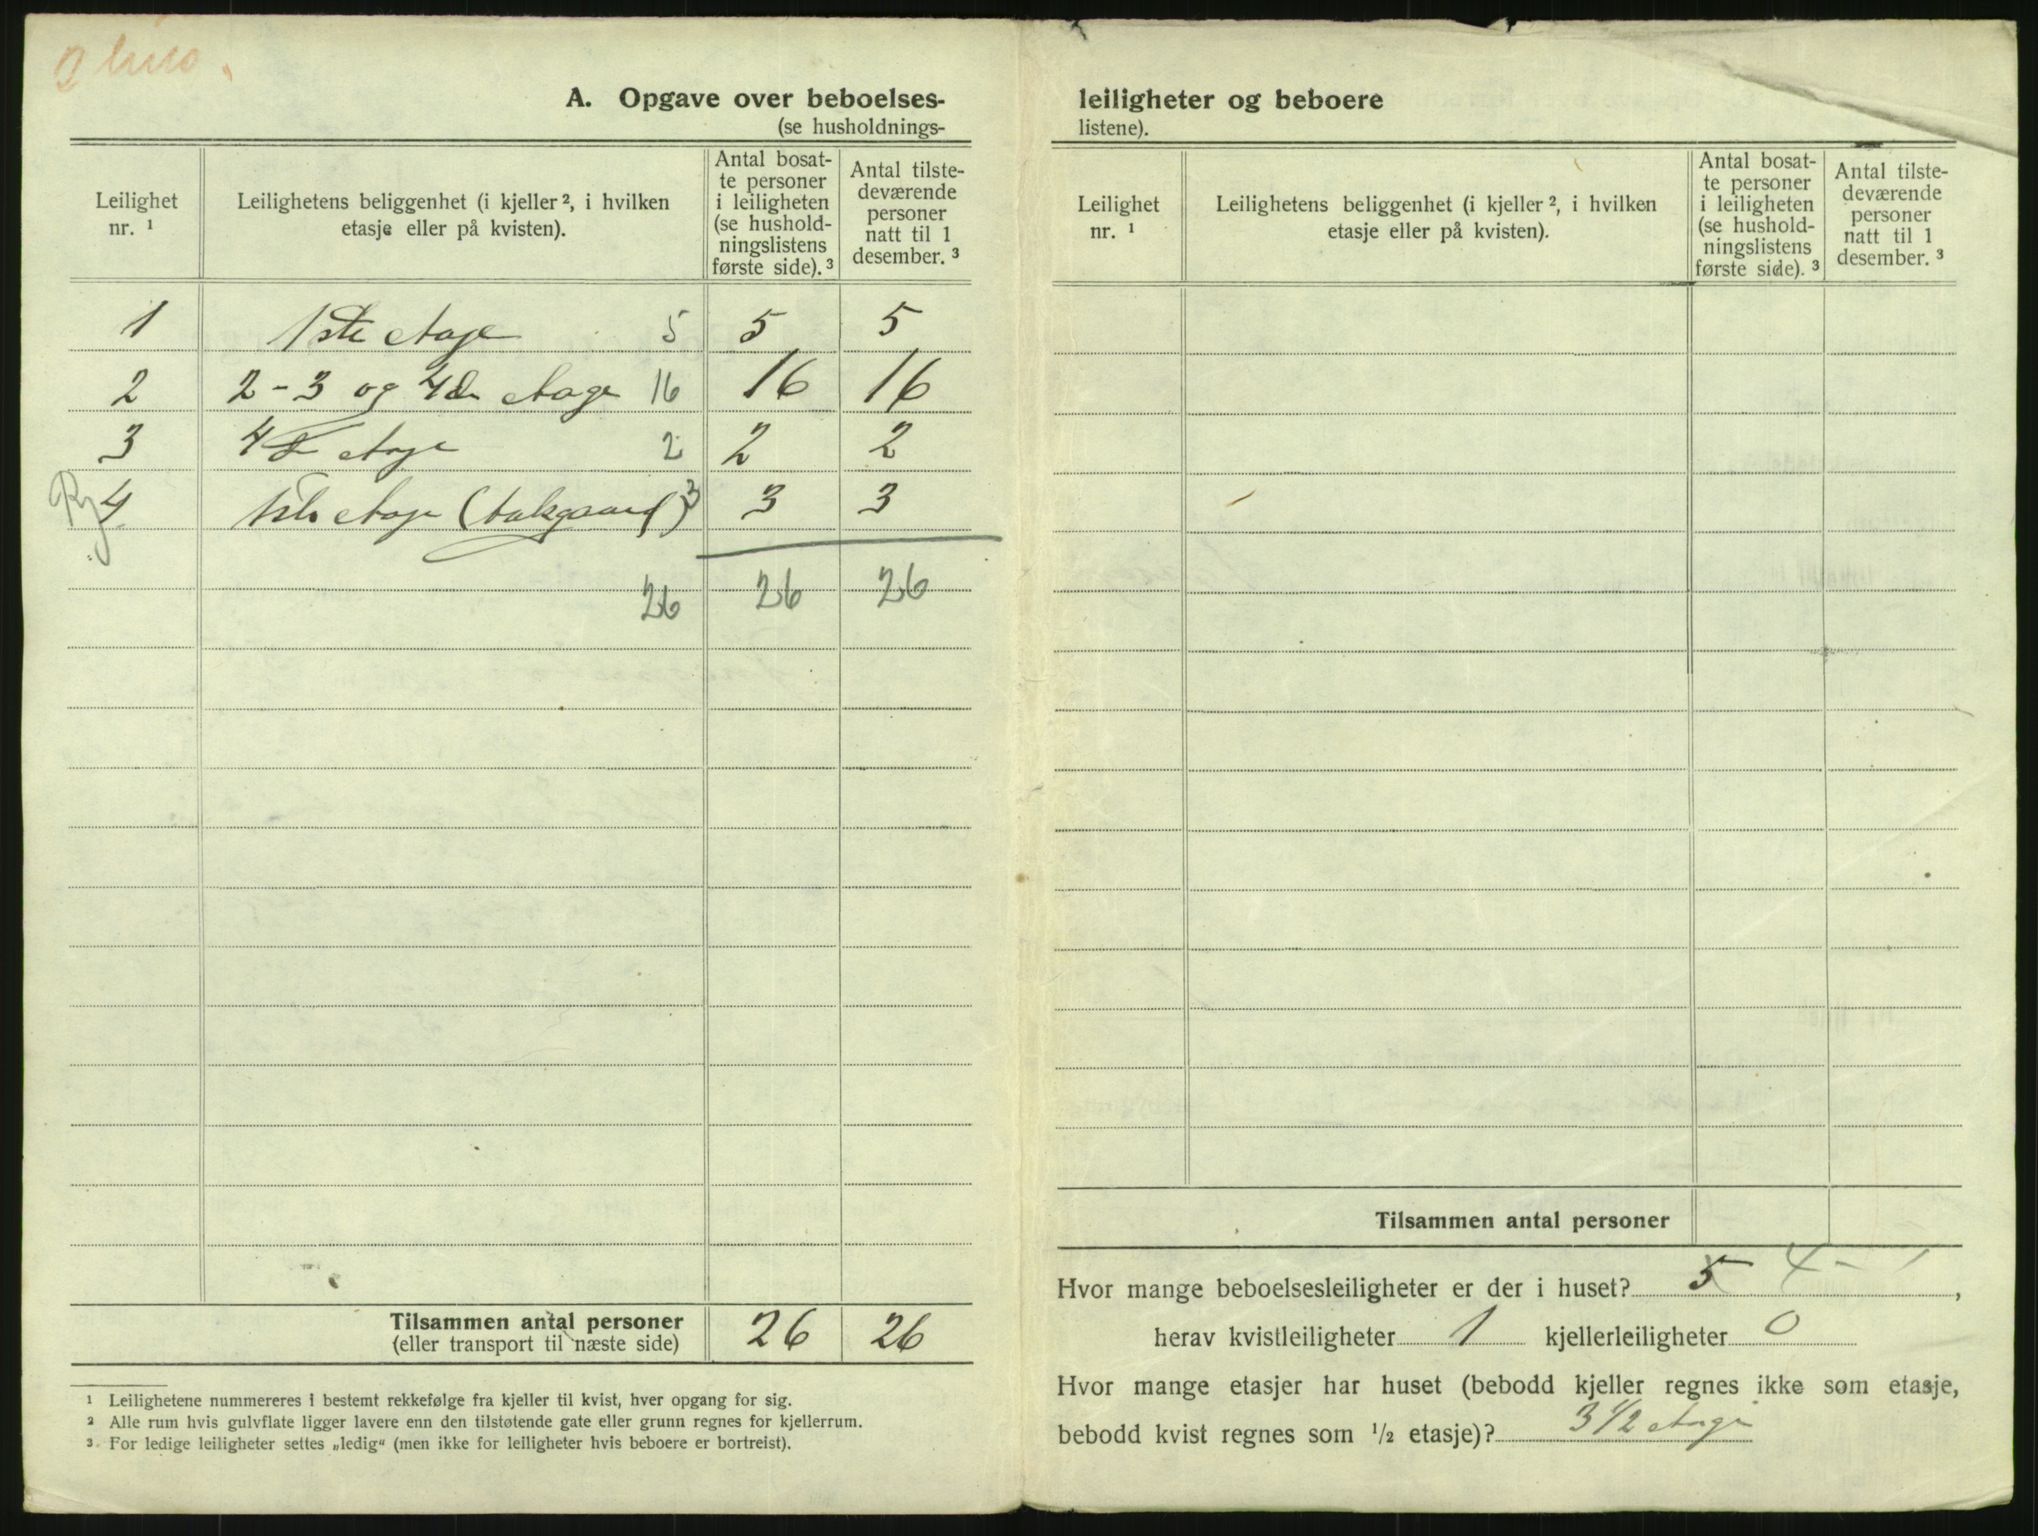 A. Opgave over beboelses-
(se husholdnings-
Leilighet
nr. ¹
Leilighetens beliggenhet (i kjeller ², i hvilken
etasje eller på kvisten).
Antal bosat-
te personer
i leiligheten
(se hushold-
ningslistens
første side). ³
Antal tilste-
deværende
personer
natt til 1
desember. ³
1 1ste etage 5 5 5
2 2-3 og 4de etage 16 16 16
3 4de etage 2 2 2
4 1ste etage (bakgaard) 3 3 3
26 26 26
Tilsammen antal personer 26 26
(eller transport til næste side)
¹ Leilighetene nummereres i bestemt rekkefølge fra kjeller til kvist, hver opgang for sig.
² Alle rum hvis gulvflate ligger lavere enn den tilstøtende gate eller grunn regnes for kjellerrum.
³ For ledige leiligheter settes „ledig“ (men ikke for leiligheter hvis beboere er bortreist).
leiligheter og beboere
listene).
Leilighet
nr. ¹
Leilighetens beliggenhet (i kjeller ², i hvilken
etasje eller på kvisten).
Antal bosat-
te personer
i leiligheten
(se hushold-
ningslistens
første side). ³
Antal tilste-
deværende
personer
natt til 1
desember. ³
Tilsammen antal personer
Hvor mange beboelsesleiligheter er der i huset? 5 4 - 1,
herav kvistleiligheter 1 kjellerleiligheter 0
Hvor mange etasjer har huset (bebodd kjeller regnes ikke som etasje,
bebodd kvist regnes som ½ etasje)? 3 1/2 etage